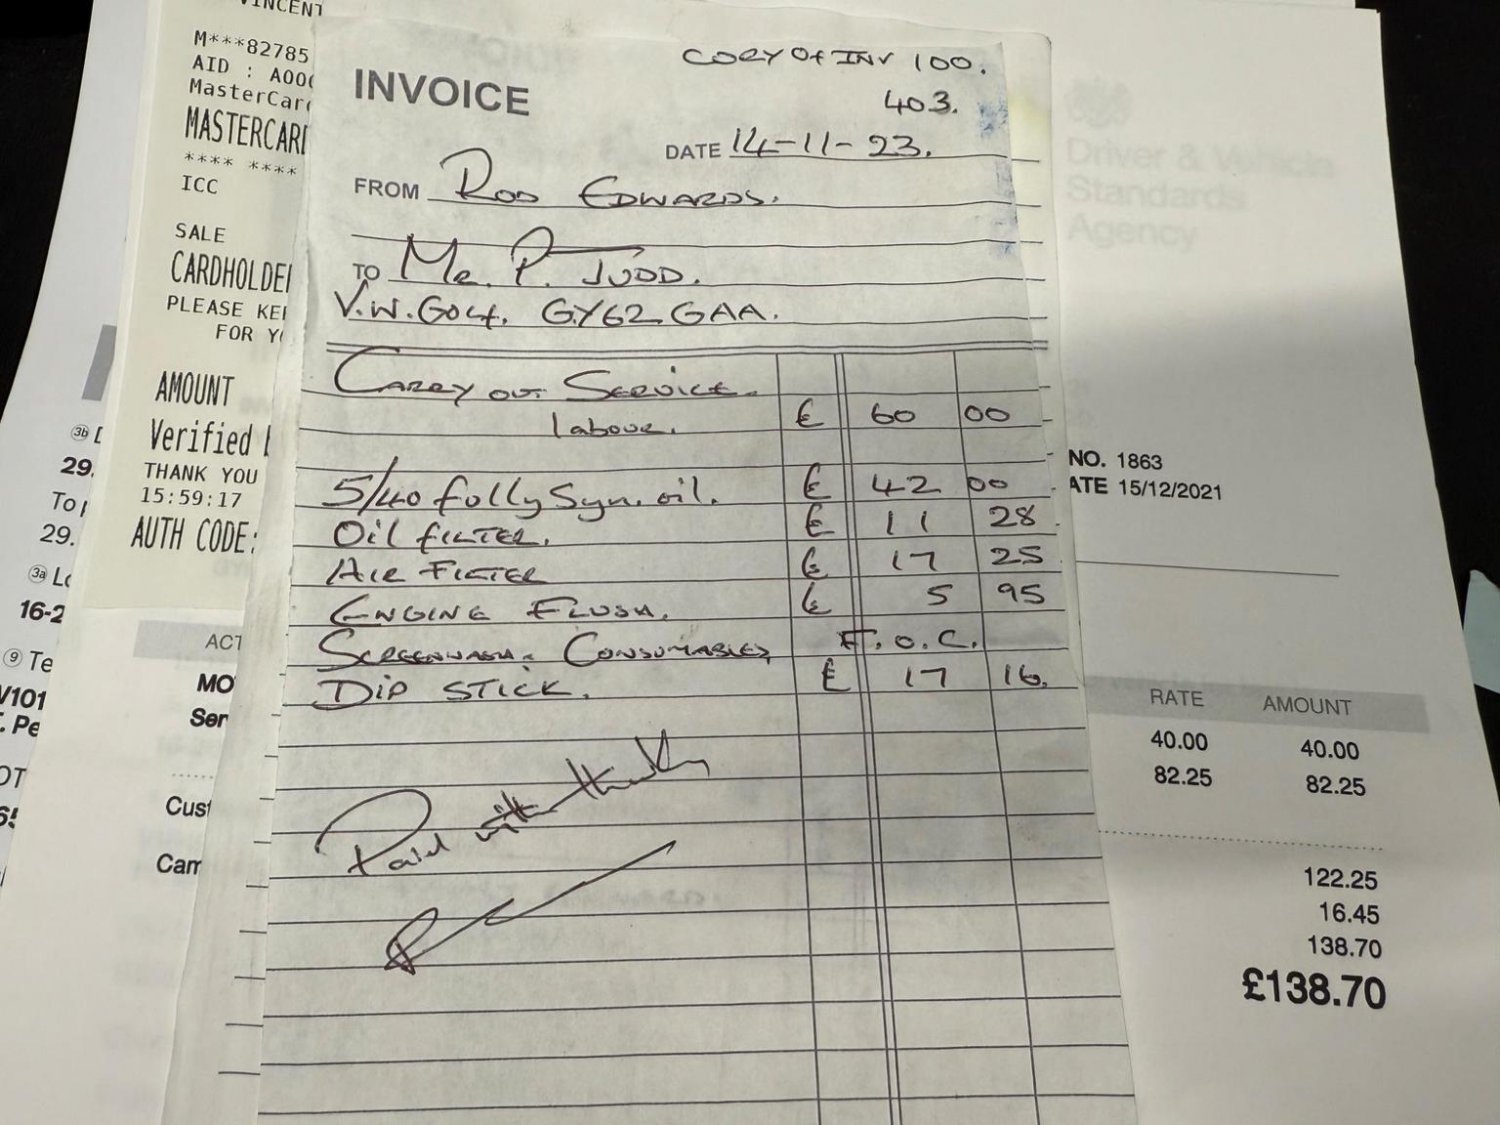 VINCENT
M***82785
AID : A000
MasterCard
MASTERCARD
**** ****
ICC
SALE
CARDHOLDER
PLEASE KEE
FOR YO
AMOUNT
Verified
THANK YOU
15:59:17
AUTH CODE:
COPY OF INV 100.
403.
INVOICE
DATE 14-11-23.
FROM ROD EDWARDS.
TO Mr. P. JUDD.
V.W. GOLF. GY62 GAA.
CARRY OUT SERVICE.
labour. £ 60 00
5/40 fully Syn. oil. £ 42 00
Oil FILTER. £ 11 28
AIR FILTER £ 17 25
ENGINE FLUSH. £ 5 95
SCREENWASH. CONSUMABLES F.O.C.
DIP STICK. £ 17 16.
Paid with thanks
Driver & Vehicle
Standards
Agency
NO. 1863
ATE 15/12/2021
RATE AMOUNT
40.00 40.00
82.25 82.25
122.25
16.45
138.70
£138.70
3b
29.
To
29.
3a Lo
16-2
9 Te
V101
. Pe
OT
ACT
MO
Ser
Cust
Cam